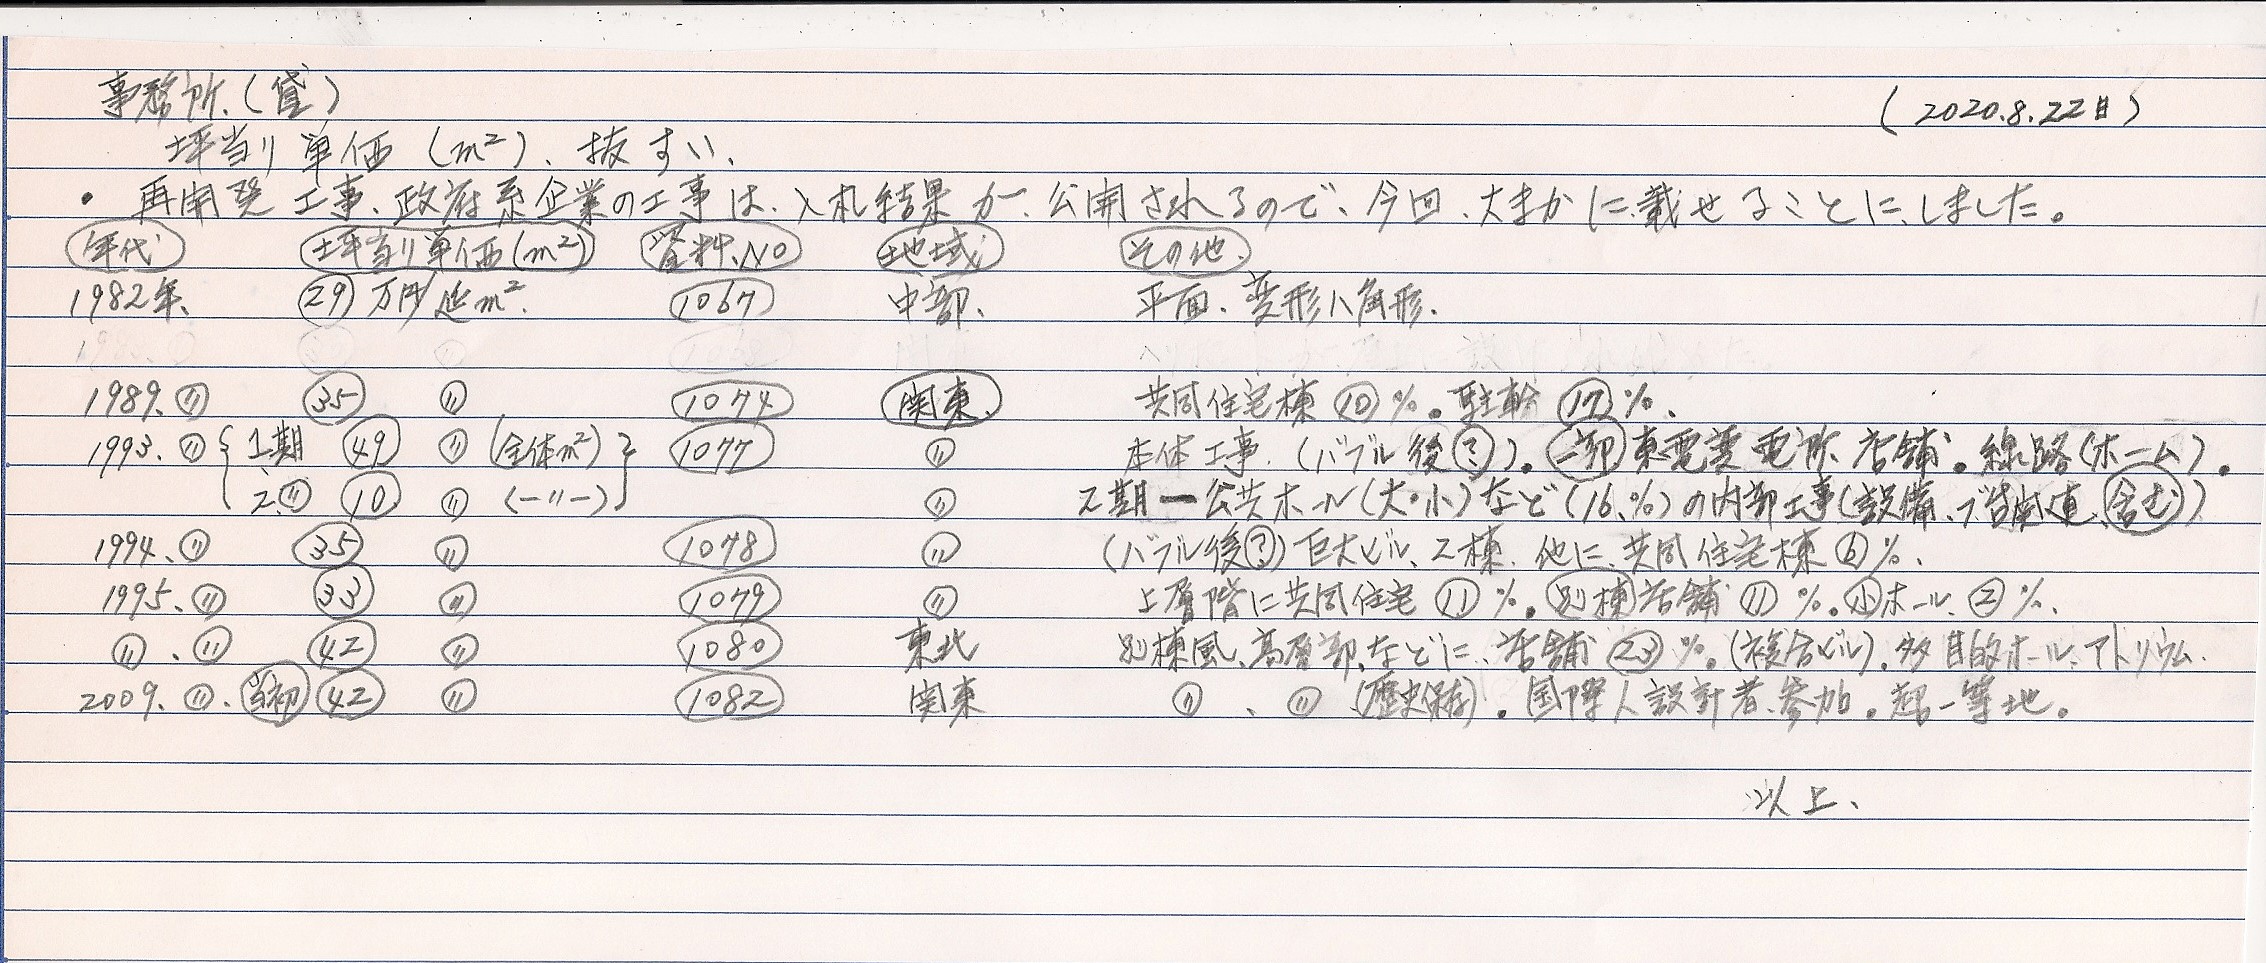 事務所.(貸)
(2020.8.22日)
坪当り単価(m²)、抜すい.
・再開発工事、政府系企業の工事は、入札結果が、公開されるので、今回、大まかに載せることにしました。
年代 坪当り単価(m²) 資料.NO 地域 その他.
1982年、 29 万円/延m². 1067 中部、 平面、変形八角形.
1989. 〃 35 〃 1074 関東、 共同住宅棟 10 %。駐輪 17 %.
1993. 〃 { 1期 49 〃 (全体m²) } 1077 〃 本体工事.(バブル後?)。一部東電変電所、店舗。線路(ホーム)。
2.〃 10 〃 (ー〃ー) 〃 2期ー公共ホール(大・小)など(16.%)の内部工事(設備、含む)
1994. 〃 35 〃 1078 〃 (バブル後?)巨大ビル、2棟. 他に、共同住宅棟 6 %.
1995、〃 33 〃 1079 〃 上層階に共同住宅 11 %。別棟店舗 11 %。小ホール、2 %.
〃、〃 42 〃 1080 東北 別棟風、高層部、などに、店舗 23 %。(複合ビル)。多目的ホール、アトリウム.
2009. 〃. 当初 42 〃 1082 関東 〃、〃(歴史保存)。国際人設計者、参加。超一等地。
以上、